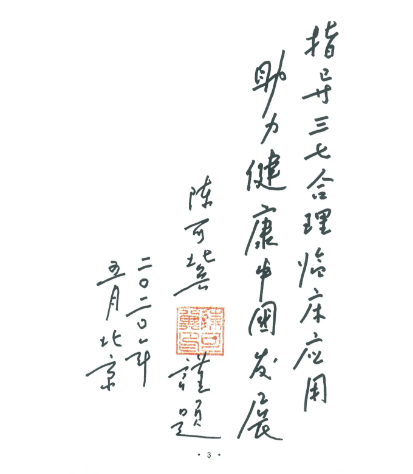 指导三七合理临床应用
助力健康中国发展
陈可冀
謹題
二〇二〇年
五月北京
· 3 ·